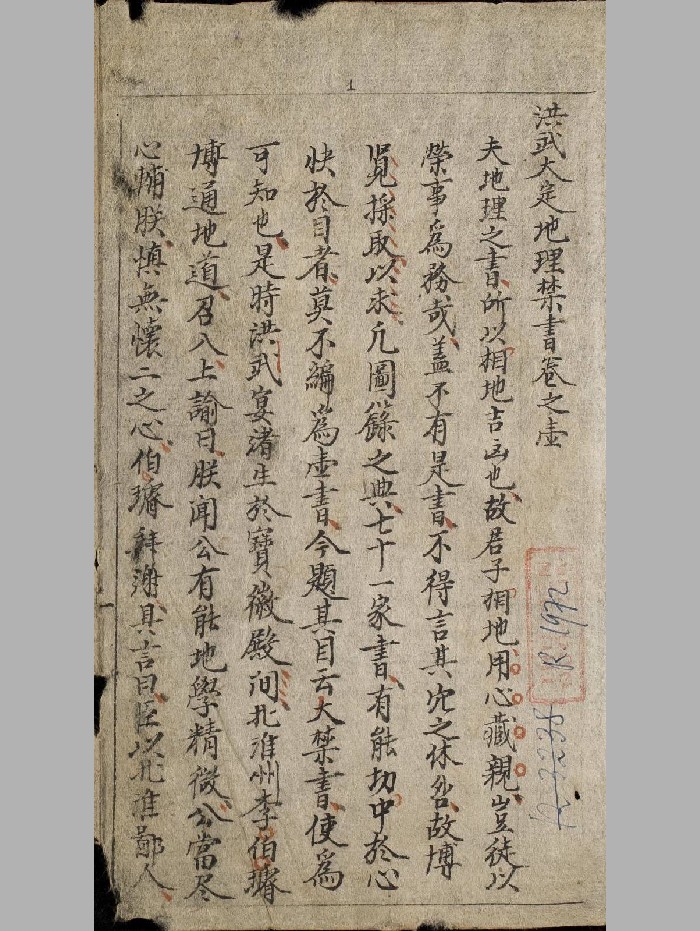 1
洪武大定地理禁書卷之壹
夫地理之書所以相地吉凶也故君子相地用心藏親豈徒以
榮事為務哉蓋不有是書不得言其穴之休咎故博
覓採取以求凡圖籙之典七十一家書有能切中於心
快於目者莫不編為壹書今題其目云大禁書使為
可知也是時洪武宴渚生於寶徽殿泂北淮州李伯璿
博通地道召入上諭曰朕聞公有能地學精微公當尽
心補朕慎無懷二之心伯璿拜謝具言曰臣以北淮鄙人
R.1972